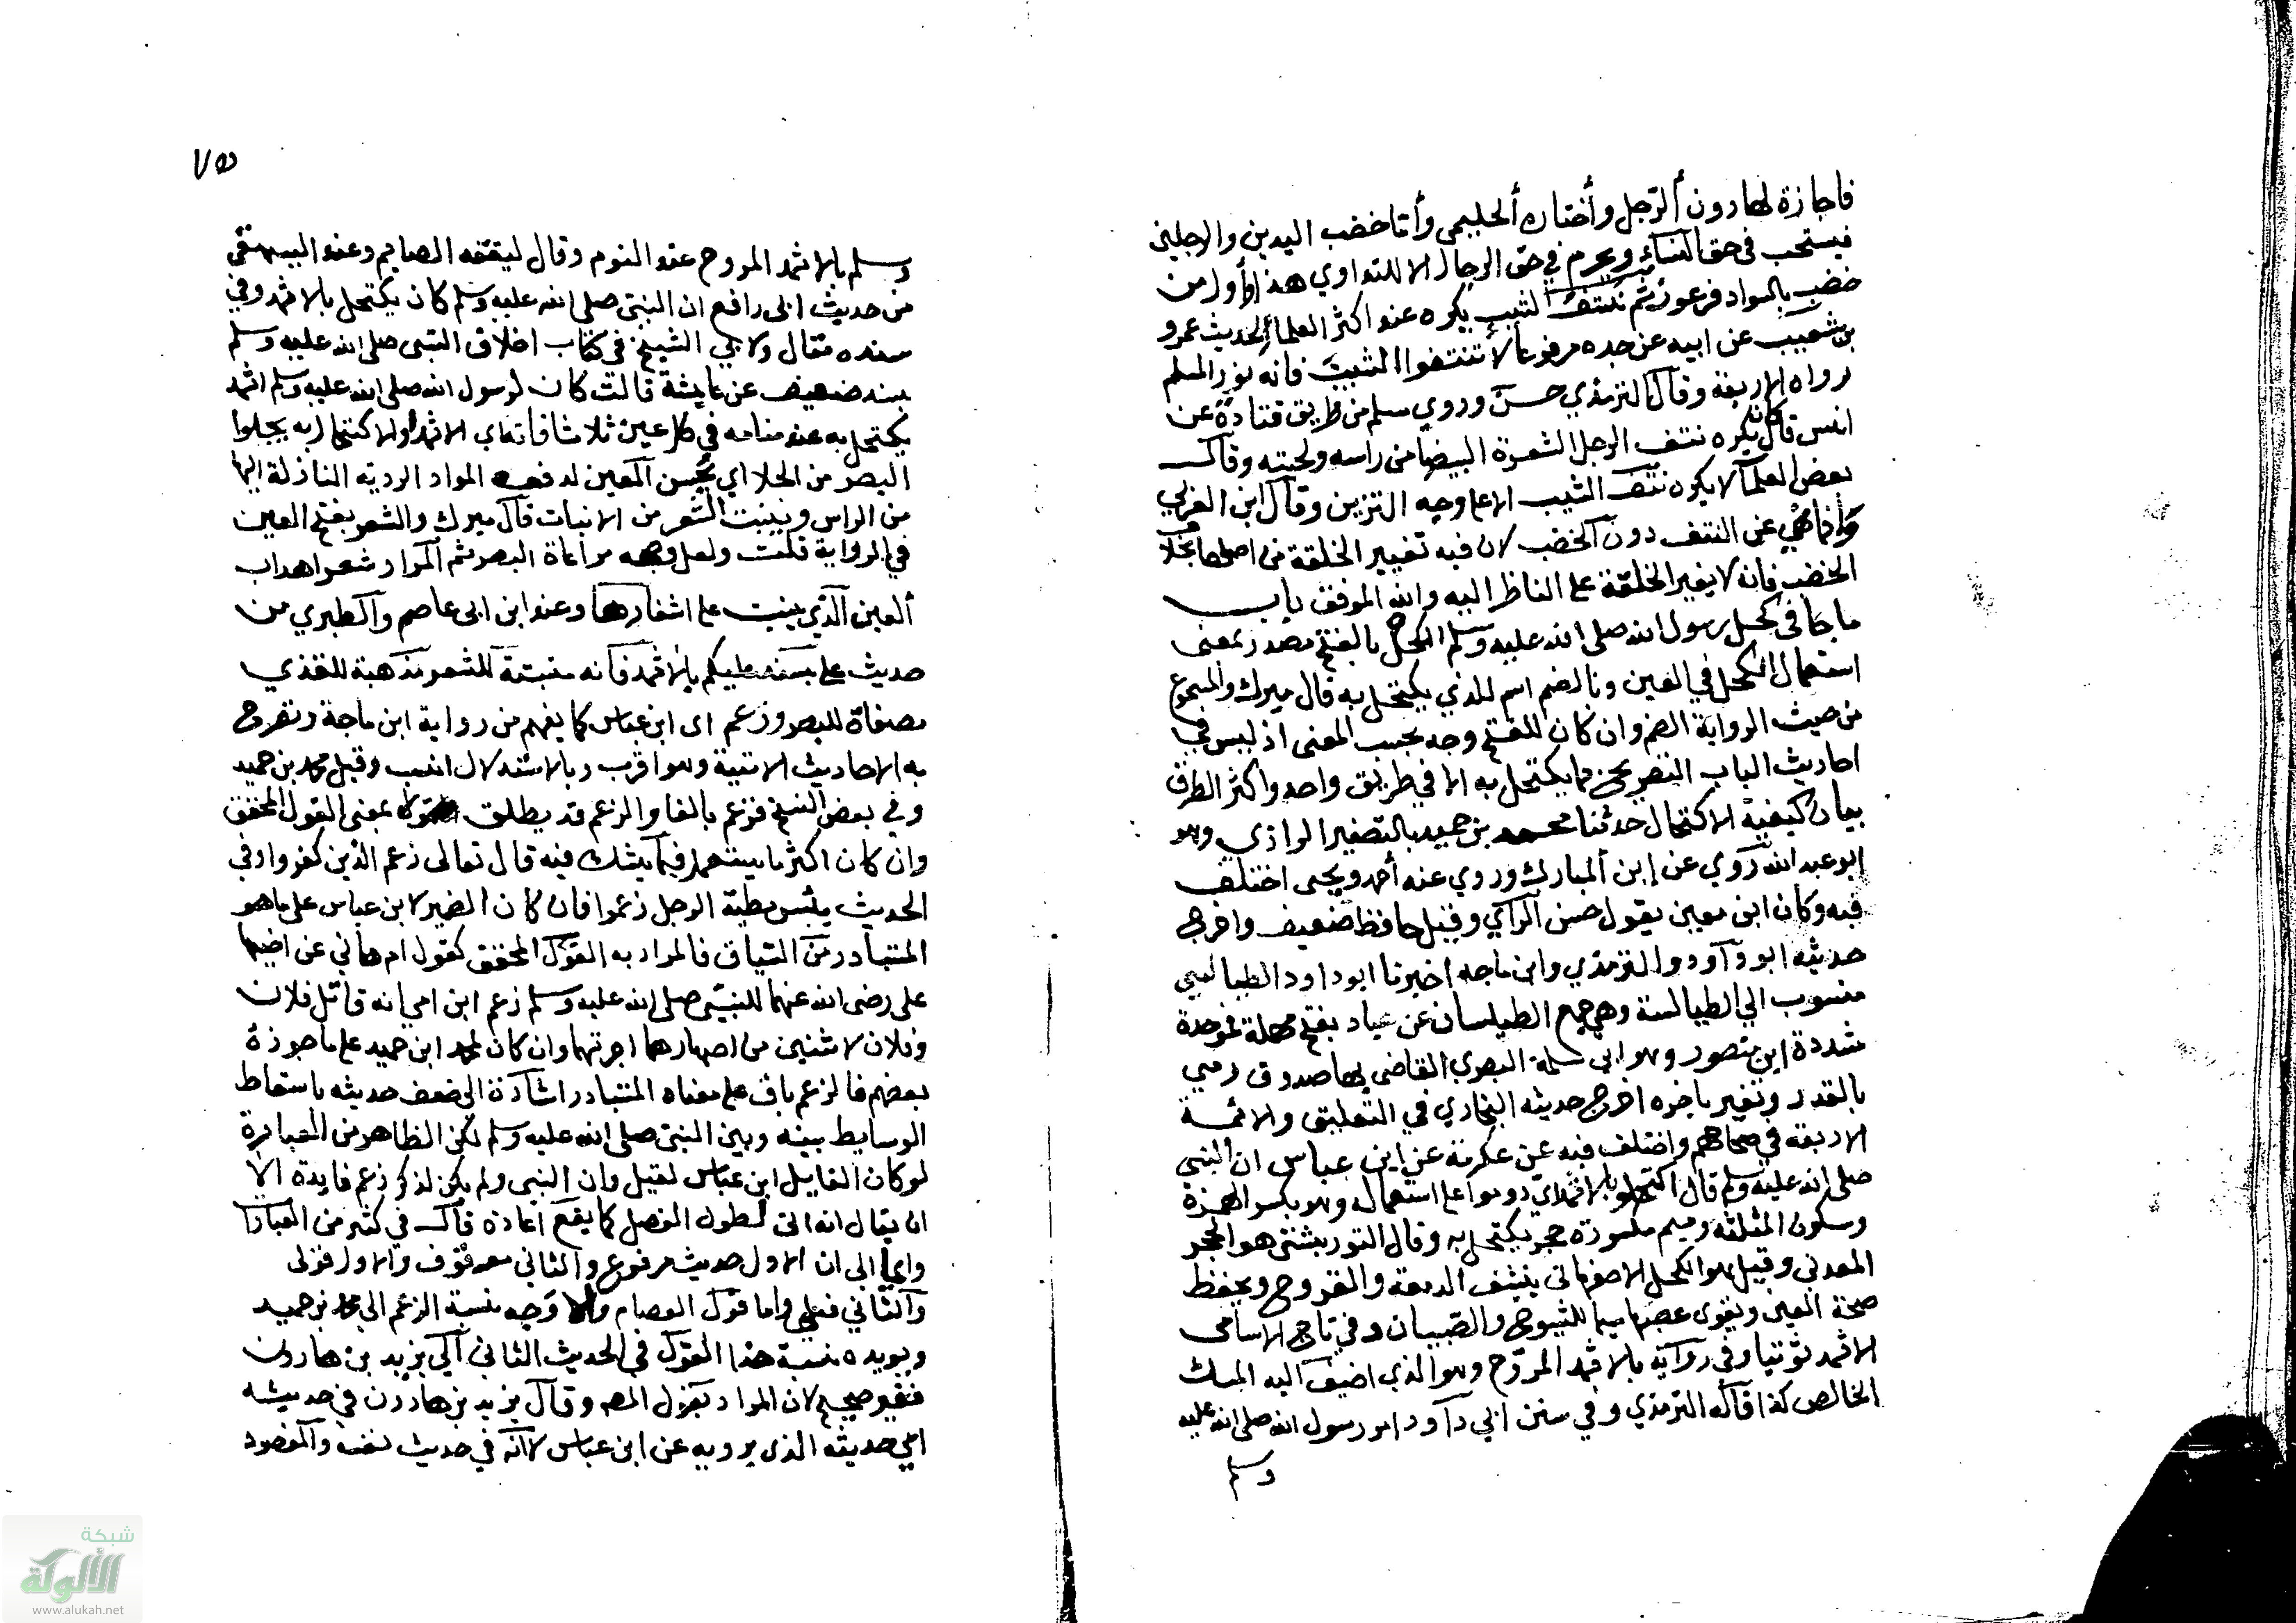 فاجازه لها دون الرجل وأختاره ألحليمي وأما خضب اليدين والرجلين
فيستحب في حق النساء ويحرم في حق الرجال الا للتداوي هذا وأول من
خضب بالسواد فرعون ثم نتف الشيب يكره عند اكثر العلماء لحديث عمرو
بن شعيب عن ابيه عن جده مرفوعا لا تنتفوا الشيب فانه نور المسلم
رواه الاربعة وقال الترمذي حسن وروي مسلم من طريق قتادة عن
انس قال كان يكره نتف الرجل الشعرة البيضا من راسه ولحيته وقال
بعض العلما لا يكره نتف الشيب الا على وجه التزين وقال ابن العربي
وانما نهي عن النتف دون الخضب لان فيه تغيير الخلقة من اصلها بخلاف
الخضب فانه لا يغير الخلقة على الناظر اليه والله الموفق باب
ما جا في كحل رسول الله صلى الله عليه وسلم الكحل بالفتح مصدر بمعنى
استعمال الكحل في العين وبالضم اسم للذي يكتحل به قال ميرك والمسموع
من حيث الرواية الضم وان كان للفتح وجه بحسب المعنى اذ ليس في
احاديث الباب التصريح بما يكتحل به الا في طريق واحد واكثر الطرق
بيان كيفية الاكتحال حدثنا محمد بن حميد بالتصغير الرازي وهو
ابو عبد الله روي عن إبن ألمبارك وروي عنه أحمد ويحيى اختلف
فيه وكان ابن معين يقول حسن الراي وقيل حافظ ضعيف واخرج
حديثه ابو داود والترمذي وابن ماجه اخبرنا ابو داود الطيالسي
منسوب الي الطيالسة وهي جمع الطيلسان عن عباد بفتح مهملة فموحدة
مشددة ابن منصور وهو ابي سلمة البصري القاضي بها صدوق رمي
بالقدر وتغير باخره اخرج حديثه البخاري في التعليق والائمة
الاربعة في صحاحهم واختلف فيه عن عكرمة عن ابن عباس ان النبي
صلى الله عليه وسلم قال اكتحلوا بالاثمد اي دوموا على استعماله وهو بكسر الهمزة
وسكون المثلثة وميم مكسورة حجر يكتحل به وقال التوربشتي هو الحجر
المعدني وقيل هو الكحل الاصفهاني ينشف الدمعة والقروح ويحفظ
صحة العين ويقوى عصبها سيما للشيوخ والصبيان وفي تاج الاسامي
الاثمد توتيا وفي رواية بالاثمد المروح وهو الذي اضيف اليه المسك
الخالص كذا قاله الترمذي وفي سنن ابي داود امر رسول الله صلى الله عليه
وسلم
٧٥
وسلم بالاثمد المروح عند النوم وقال ليتقه الصايم وعند البيهقي
من حديث ابي رافع ان النبي صلى الله عليه وسلم كان يكتحل بالاثمد وفي
سنده مقال ولابي الشيخ في كتاب اخلاق النبي صلى الله عليه وسلم
بسند ضعيف عن عايشة قالت كان لرسول الله صلى الله عليه وسلم اثمد
يكتحل به عند منامه في كل عين ثلاثا فانه اي الاثمد أو الاكتحال به يجلوا
البصر من الجلا اي يحسن العين لدفعه المواد الرديه النازلة اليها
من الراس وينبت الشعر من الانبات قال ميرك والشعر بفتح العين
في الرواية قلت ولعل وجهه مراعاة البصر ثم المراد شعر اهداب
ألعين الذي ينبت على اشفارها وعند ابن ابي عاصم والطبري من
حديث علي بسند عليكم بالاثمد فانه منبتة للشعر مذهبة للقذي
مصفاة للبصر وزعم اى ابن عباس كما يفهم من رواية ابن ماجة وتصرح
به الاحاديث الاتية وهو اقرب وبالاستدلال انسب وقيل محمد بن حميد
وفي بعض النسخ فزعم بالفا والزعم قد يطلق بمعنى القول المحقق
وان كان اكثر ما يستعمل فيما يشك فيه قال تعالى زعم الذين كفروا وفي
الحديث بئس مطية الرجل زعموا فان كان الضمير لابن عباس على ما هو
المتبادر من السياق فالمراد به القول المحقق كقول ام هاني عن اخيها
على رضى الله عنهما للنبي صلى الله عليه وسلم زعم ابن امي انه قاتل فلان
وفلان لاثنين من اصهارهما اجرتهما وان كان لمحمد ابن حميد على ما جوزه
بعضهم فالزعم باق على معناه المتبادر اشارة الى ضعف حديثه باسقاط
الوسايط بينه وبين النبي صلى الله عليه وسلم لكن الظاهر من العبارة
لو كان القايل ابن عباس لقيل وان النبي ولم يكن لذكر زعم فايدة الا
ان يقال انه اتى لطول الفصل كما يقع اعادة قال في كثير من العبارات
وايما الى ان الاول حديث مرفوع والثاني موقوف والاول قولى
والثاني فعلى واما قول العصام والاوجه نسبة الزعم الى محمد بن حميد
ويويده نسبة هذا القول في الحديث الثاني الي يزيد بن هارون
فغير صحيح لان المراد بقول المص وقال يزيد بن هارون في حديثه
اي حديثه الذي يرويه عن ابن عباس لا انه في حديث نفسه والمقصود
شبكة
الألوكة
www.alukah.net